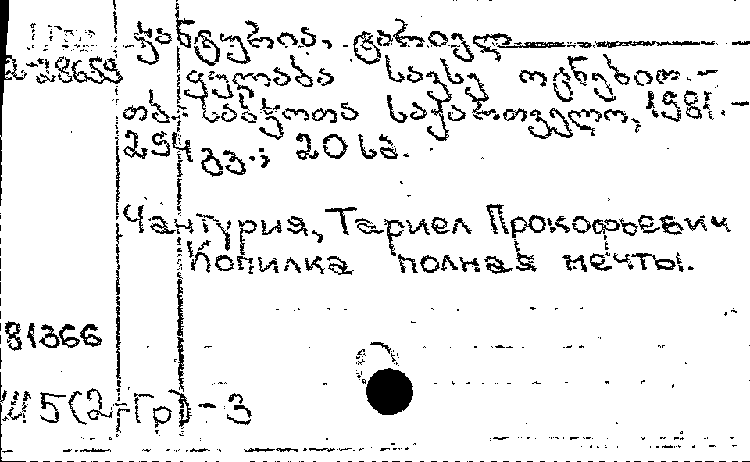 ჭანტურია, ტარიელ
2-28659 ყულაბა სავსე ოცნებით.-
თბ.: საბჭოთა საქართველო, 1981.-
294 გვ.; 20 სმ.
Чантурия, Тариел Прокофьевич
Копилка полная мечты.
81366
Ш5(2=Гр)-3